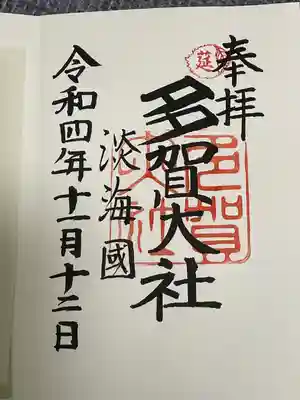 奉拝
莚
多賀大社
多賀大社
淡海國
令和四年十一月十二日